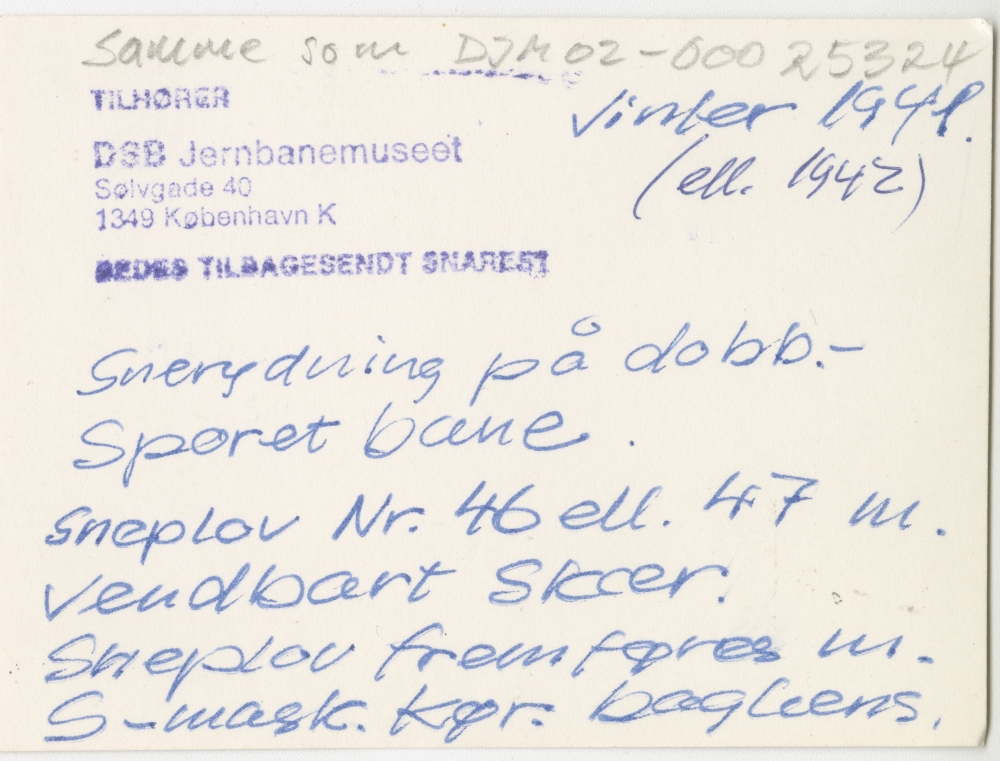 Samme som DJM02-00025324
TILHØRER
DSB Jernbanemuseet
Sølvgade 40
1349 København K
BEDES TILBAGESENDT SNAREST
Vinter 1941.
(ell. 1942)
Snerydning på dobb.-
Sporet bane.
Sneplov Nr. 46 ell. 47 m.
Vendbart Skær.
Sneplov fremføres m.
S-mask. Kør. baglæns.